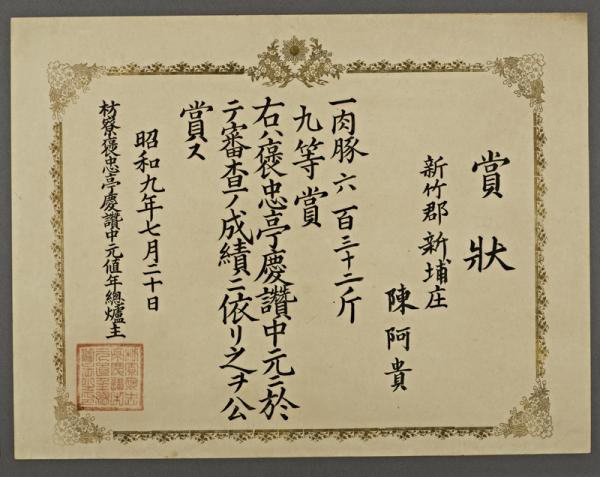 賞狀
新竹郡新埔庄
陳阿貴
一肉豚六百三十二斤
九等賞
右ハ褒忠亭慶讚中元ニ於
テ審査ノ成績ニ依リ之ヲ公
賞ス
昭和九年七月二十日
枋寮褒忠亭慶讚中元值年總爐主